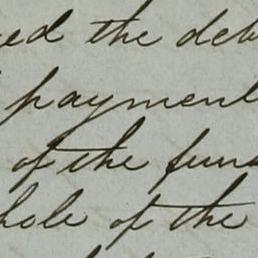 ed the deb
payment
of the fun
hole of the